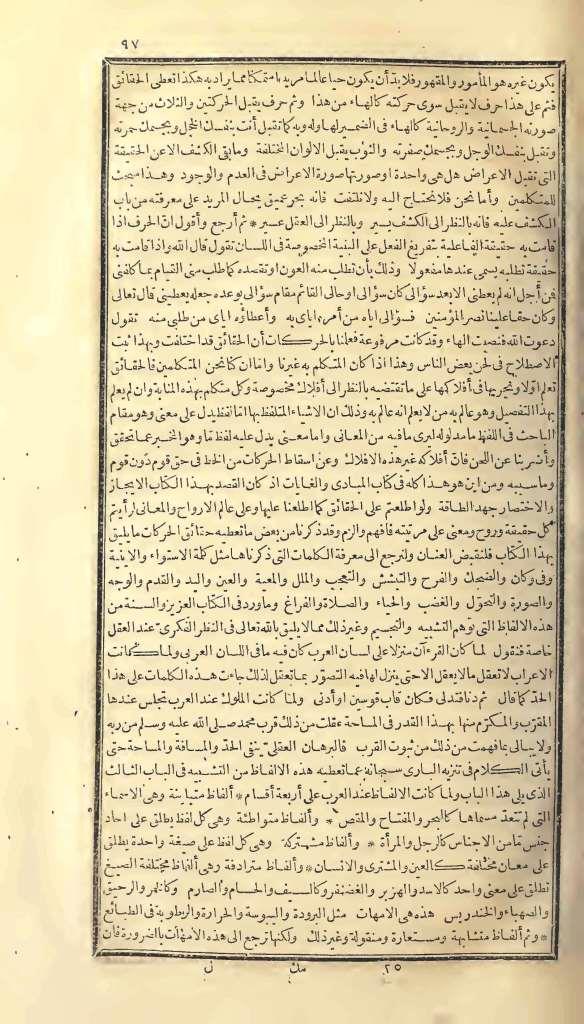 ٩٧
يكون غيره هو المأمور والمقهور فلا بدّ أن يكون حيا عالما مريدا متمكنا مما يراد به هكذا تعطى الحقائق
فثم على هذا حرف لا يقبل سوى حركته كالهاء من هذا وثم حرف يقبل الحركتين والثلاث من جهة
صورته الجسمانية والروحانية كالهاء فى الضمير لها وله وبه كما تقبل أنت بنفسك الخجل وبجسمك حمرته
وتقبل بنفسك الوجل وبجسمك صفرته والثوب يقبل الالوان المختلفة وما بقى الكشف الا عن الحقيقة
التى تقبل الاعراض هل هى واحدة او صورتها صورة الاعراض فى العدم والوجود وهذا مبحث
للمتكلمين وأما نحن فلا نحتاج اليه ولا نلتفت فانه بحر عميق يحال المريد على معرفته من باب
الكشف عليه فانه بالنظر الى الكشف يسير وبالنظر الى العقل عسير * ثم أرجع وأقول انّ الحرف اذا
قامت به حقيقة الفاعلية بتفريغ الفعل على البنية المخصوصة فى اللسان تقول قال الله واذا قامت به
حقيقة تطلبه يسمى عندها مفعولا وذلك بأن تطلب منه العون او تقصده كما طلب منى القيام بما كلفنى
فمن أجل انه لم يعطنى الا بعد سؤالى كان سؤالى او حالى القائم مقام سؤالى بوعده جعله يعطينى قال تعالى
وكان حقا علينا نصر المؤمنين فسؤالى اياه من أمره اياى به وأعطاؤه اياى من طلبى منه تقول
دعوت الله فنصبت الهاء وقد كانت مرفوعة فعلنا بالحركات أن الحقائق قد اختلفت وبهذا ثبت
الاصطلاح فى لحن بعض الناس وهذا اذا كان المتكلم به غيرنا واما ان كنا نحن المتكلمين فالحقائق
تعلم اوّلا ونجريها فى أفلاكها على ما تقتضيه بالنظر الى أفلاك مخصوصة وكل متكلم بهذه المثابة وان لم يعلم
بهذا التفصيل وهو عالم به من لا يعلم انه عالم به وذلك ان الاشياء المتلفظ بها اما لفظ يدل على معنى وهو مقام
الباحث فى اللفظ ما مدلوله ليرى ما فيه من المعانى واما معنى يدل عليه لفظ ما وهو المخبر عما تحقق
وأضربنا عن اللحن فانّ أفلاكه غير هذه الافلاك وعن اسقاط الحركات من الخط فى حق قوم دون قوم
وما سببه ومن اين هو هذا كله فى كتاب المبادى والغايات اذ كان القصد بهذا الكتاب الايجاز
والاختصار جهد الطاقة ولو اطلعتم على الحقائق كما اطلعنا عليها وعلى عالم الارواح والمعانى لرأيتم
كل حقيقة وروح ومعنى على مرتبته فافهم والزم وقد ذكرنا من بعض ما تعطيه حقائق الحركات ما يليق
بهذا الكتاب فلنقبض العنان ولنرجع الى معرفة الكلمات التى ذكرناها مثل كلمة الاستواء والاينية
وفى وكان والضحك والفرح والتبشبش والتعجب والملل والمعية والعين واليد والقدم والوجه
والصورة والتحوّل والغضب والحياء والصلاة والفراغ وما ورد فى الكتاب العزيز والسنة من
هذه الالفاظ التى توهم التشبيه والتجسيم وغير ذلك مما لا يليق بالله تعالى فى النظر الفكرى عند العقل
خاصة فنقول لما كان القرءآن منزلا على لسان العرب كان فيه ما فى اللسان العربى ولما كانت
الاعراب لا تعقل ما لا يعقل الا حتى ينزل لها فيه التصوّر بما تعقل لذلك جاءت هذه الكلمات على هذا
الحدّ كما قال ثم دنا فتدلى فكان قاب قوسين أو أدنى ولما كانت الملوك عند العرب تجلس عندها
المقرّب والمكرّم منها بهذا القدر فى المساحة عقلت من ذلك قرب محمد صلى الله عليه وسلم من ربه
ولا يبالى بما فهمت من ذلك من ثبوت القرب فالبرهان العقلى ينفى الحدّ والمسافة والمساحة حتى
يأتى الكلام فى تنزيه البارى سبحانه عما تعطيه هذه الالفاظ من التشبيه فى الباب الثالث
الذى يلى هذا الباب ولما كانت الالفاظ عند العرب على أربعة أقسام * ألفاظ متباينة وهى الاسماء
التى لم تتعدّ مسماها كالبحر والمفتاح والمقص * وألفاظ متواطئة وهى كل لفظ يطلق على احاد
جنس تا من الاجناس كالرجل والمرأة * وألفاظ مشتركة وهى كل لفظ على صيغة واحدة يطلق
على معان مختلفة كالعين والمشترى والانسان * وألفاظ مترادفة وهى ألفاظ مختلفة الصيغ
تطلق على معنى واحد كالاسد والهزبر والغضنفر وكالسيف والحسام والصارم وكالخمر والرحيق
والصهباء والخندريس هذه هى الامهات مثل البرودة واليبوسة والحرارة والرطوبة فى الطبائع
* وثم ألفاظ متشابهة ومستعارة ومنقولة وغير ذلك ولكنها ترجع الى هذه الامّهات بالضرورة فان
٢٥ مك ل